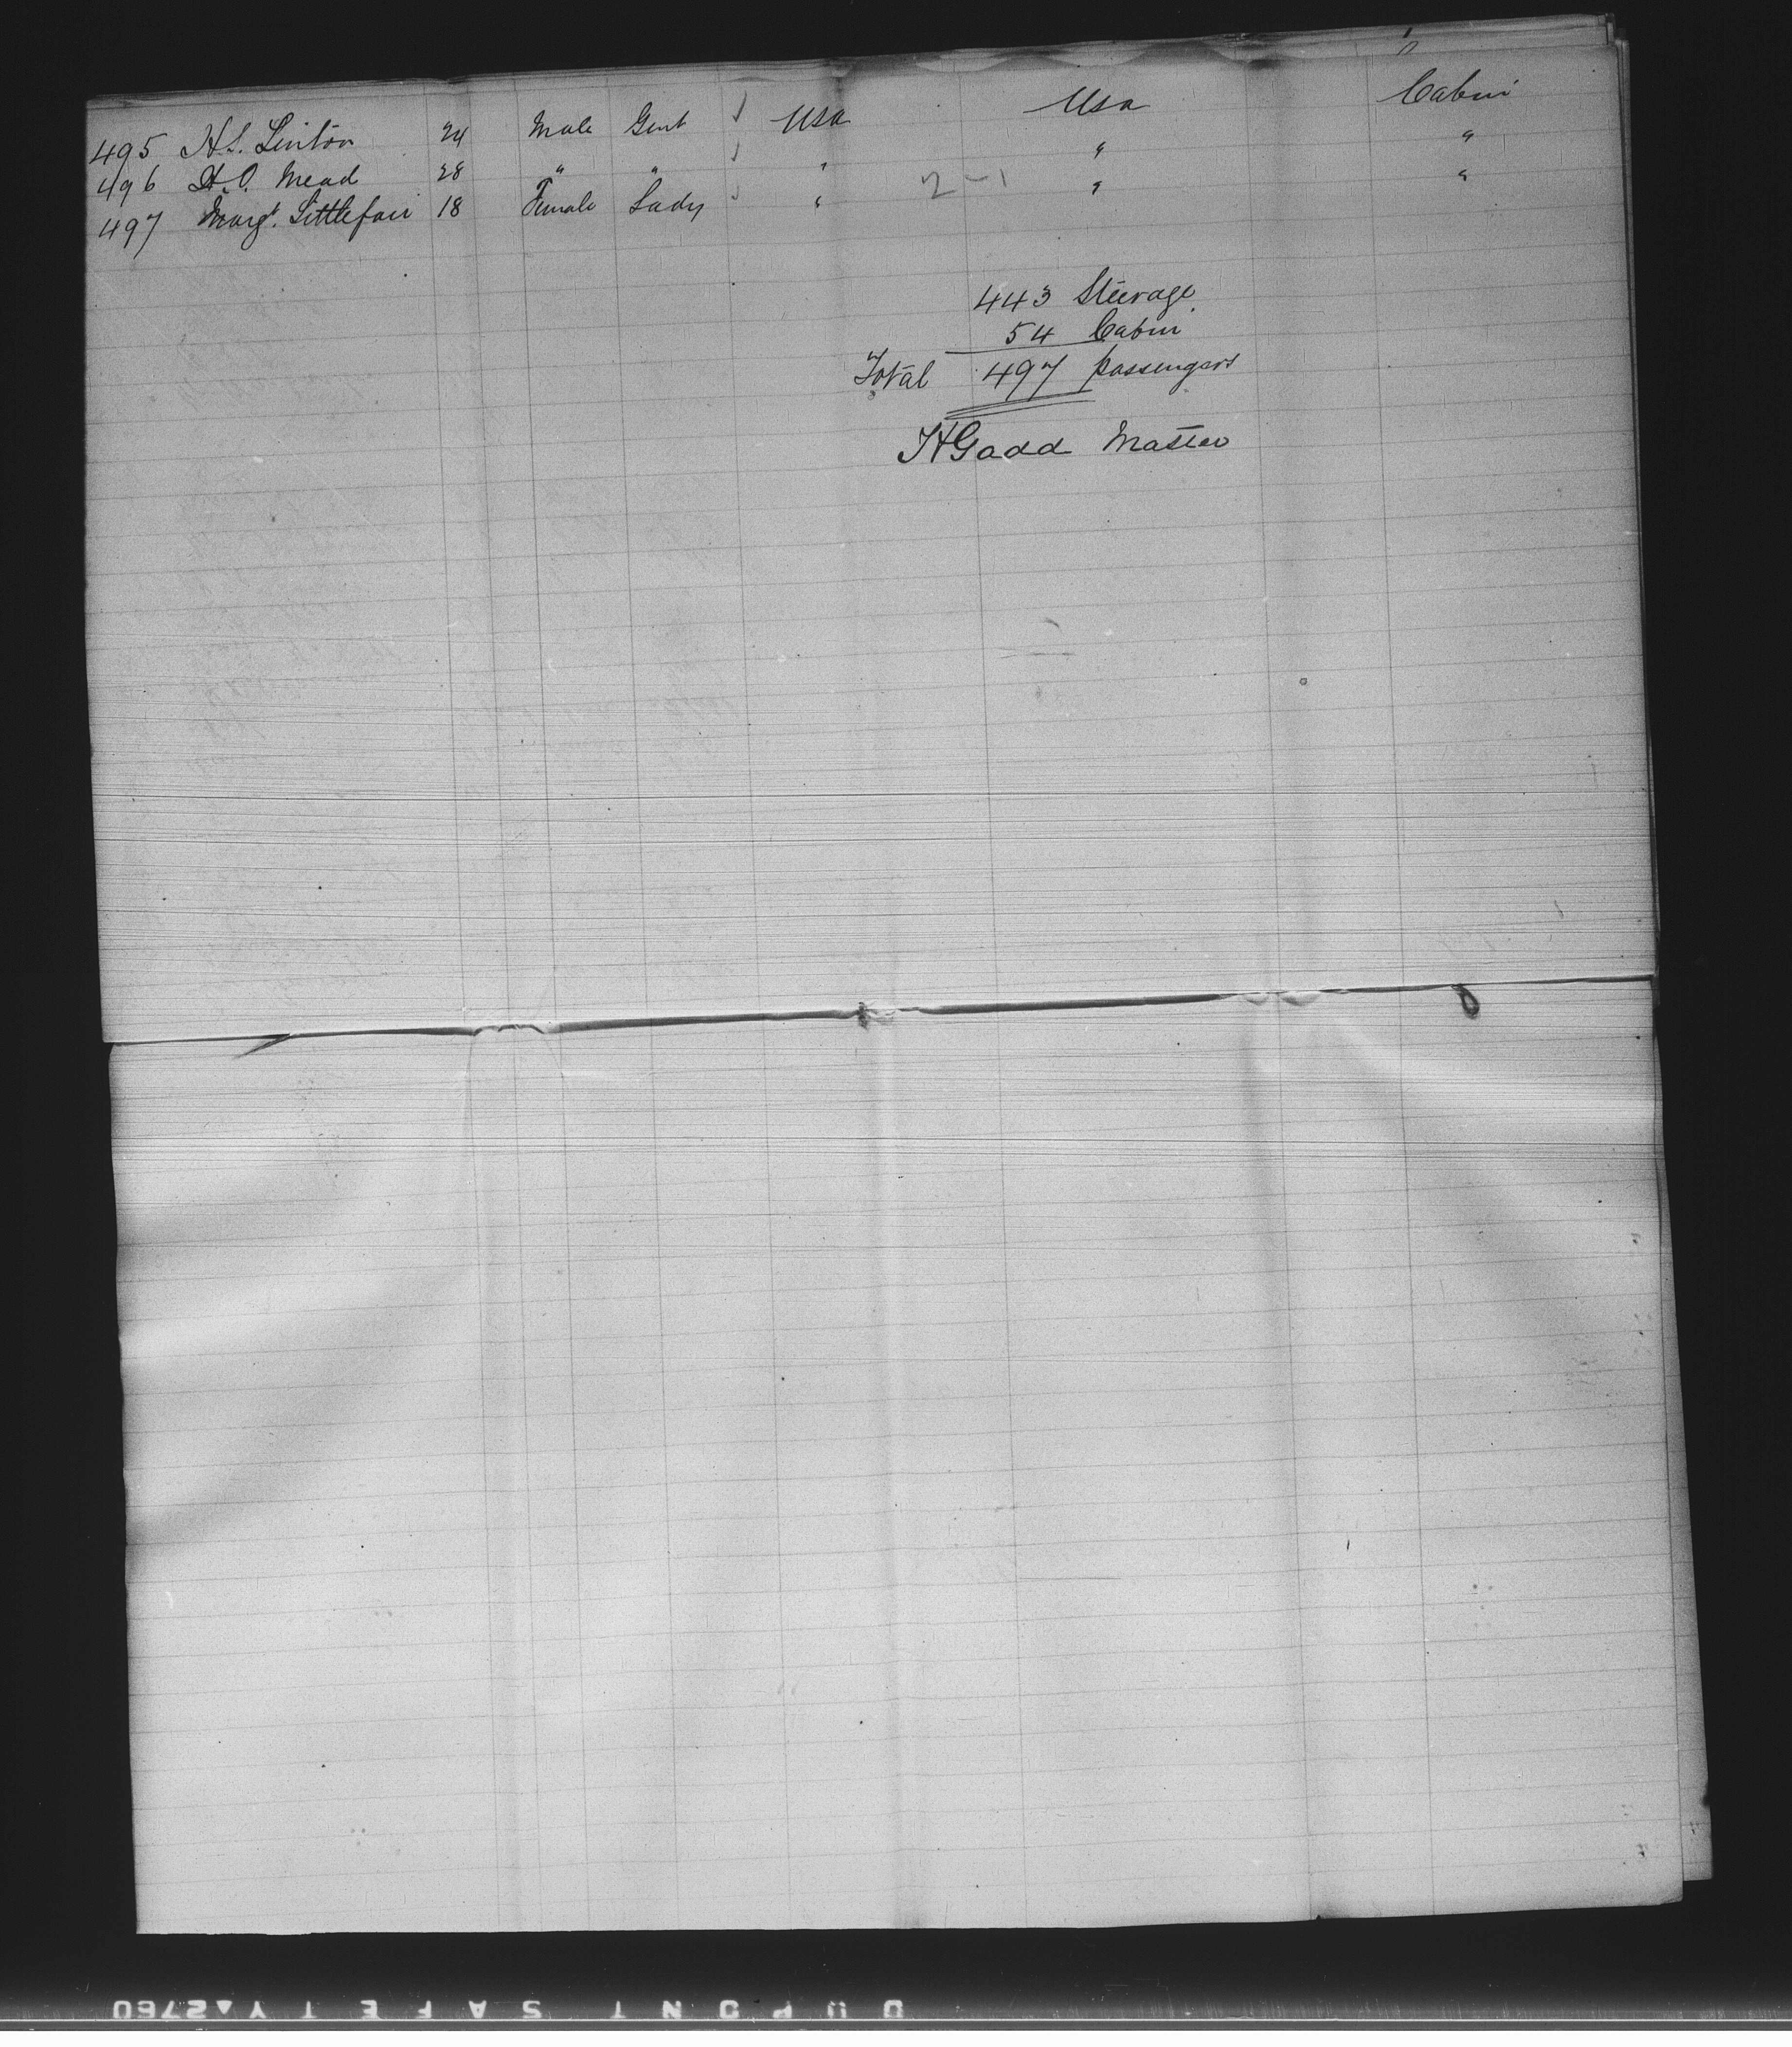 495 H.L. Linton 24 Male Gent USA Usa Cabin
496 H.O. Mead 28 " " " " "
497 Margt. Littlefair 18 Female Lady " 2-1 " "
443 Steerage
54 Cabin
Total 497 passengers
H Gadd Master
DUPONT SAFETY▲2760